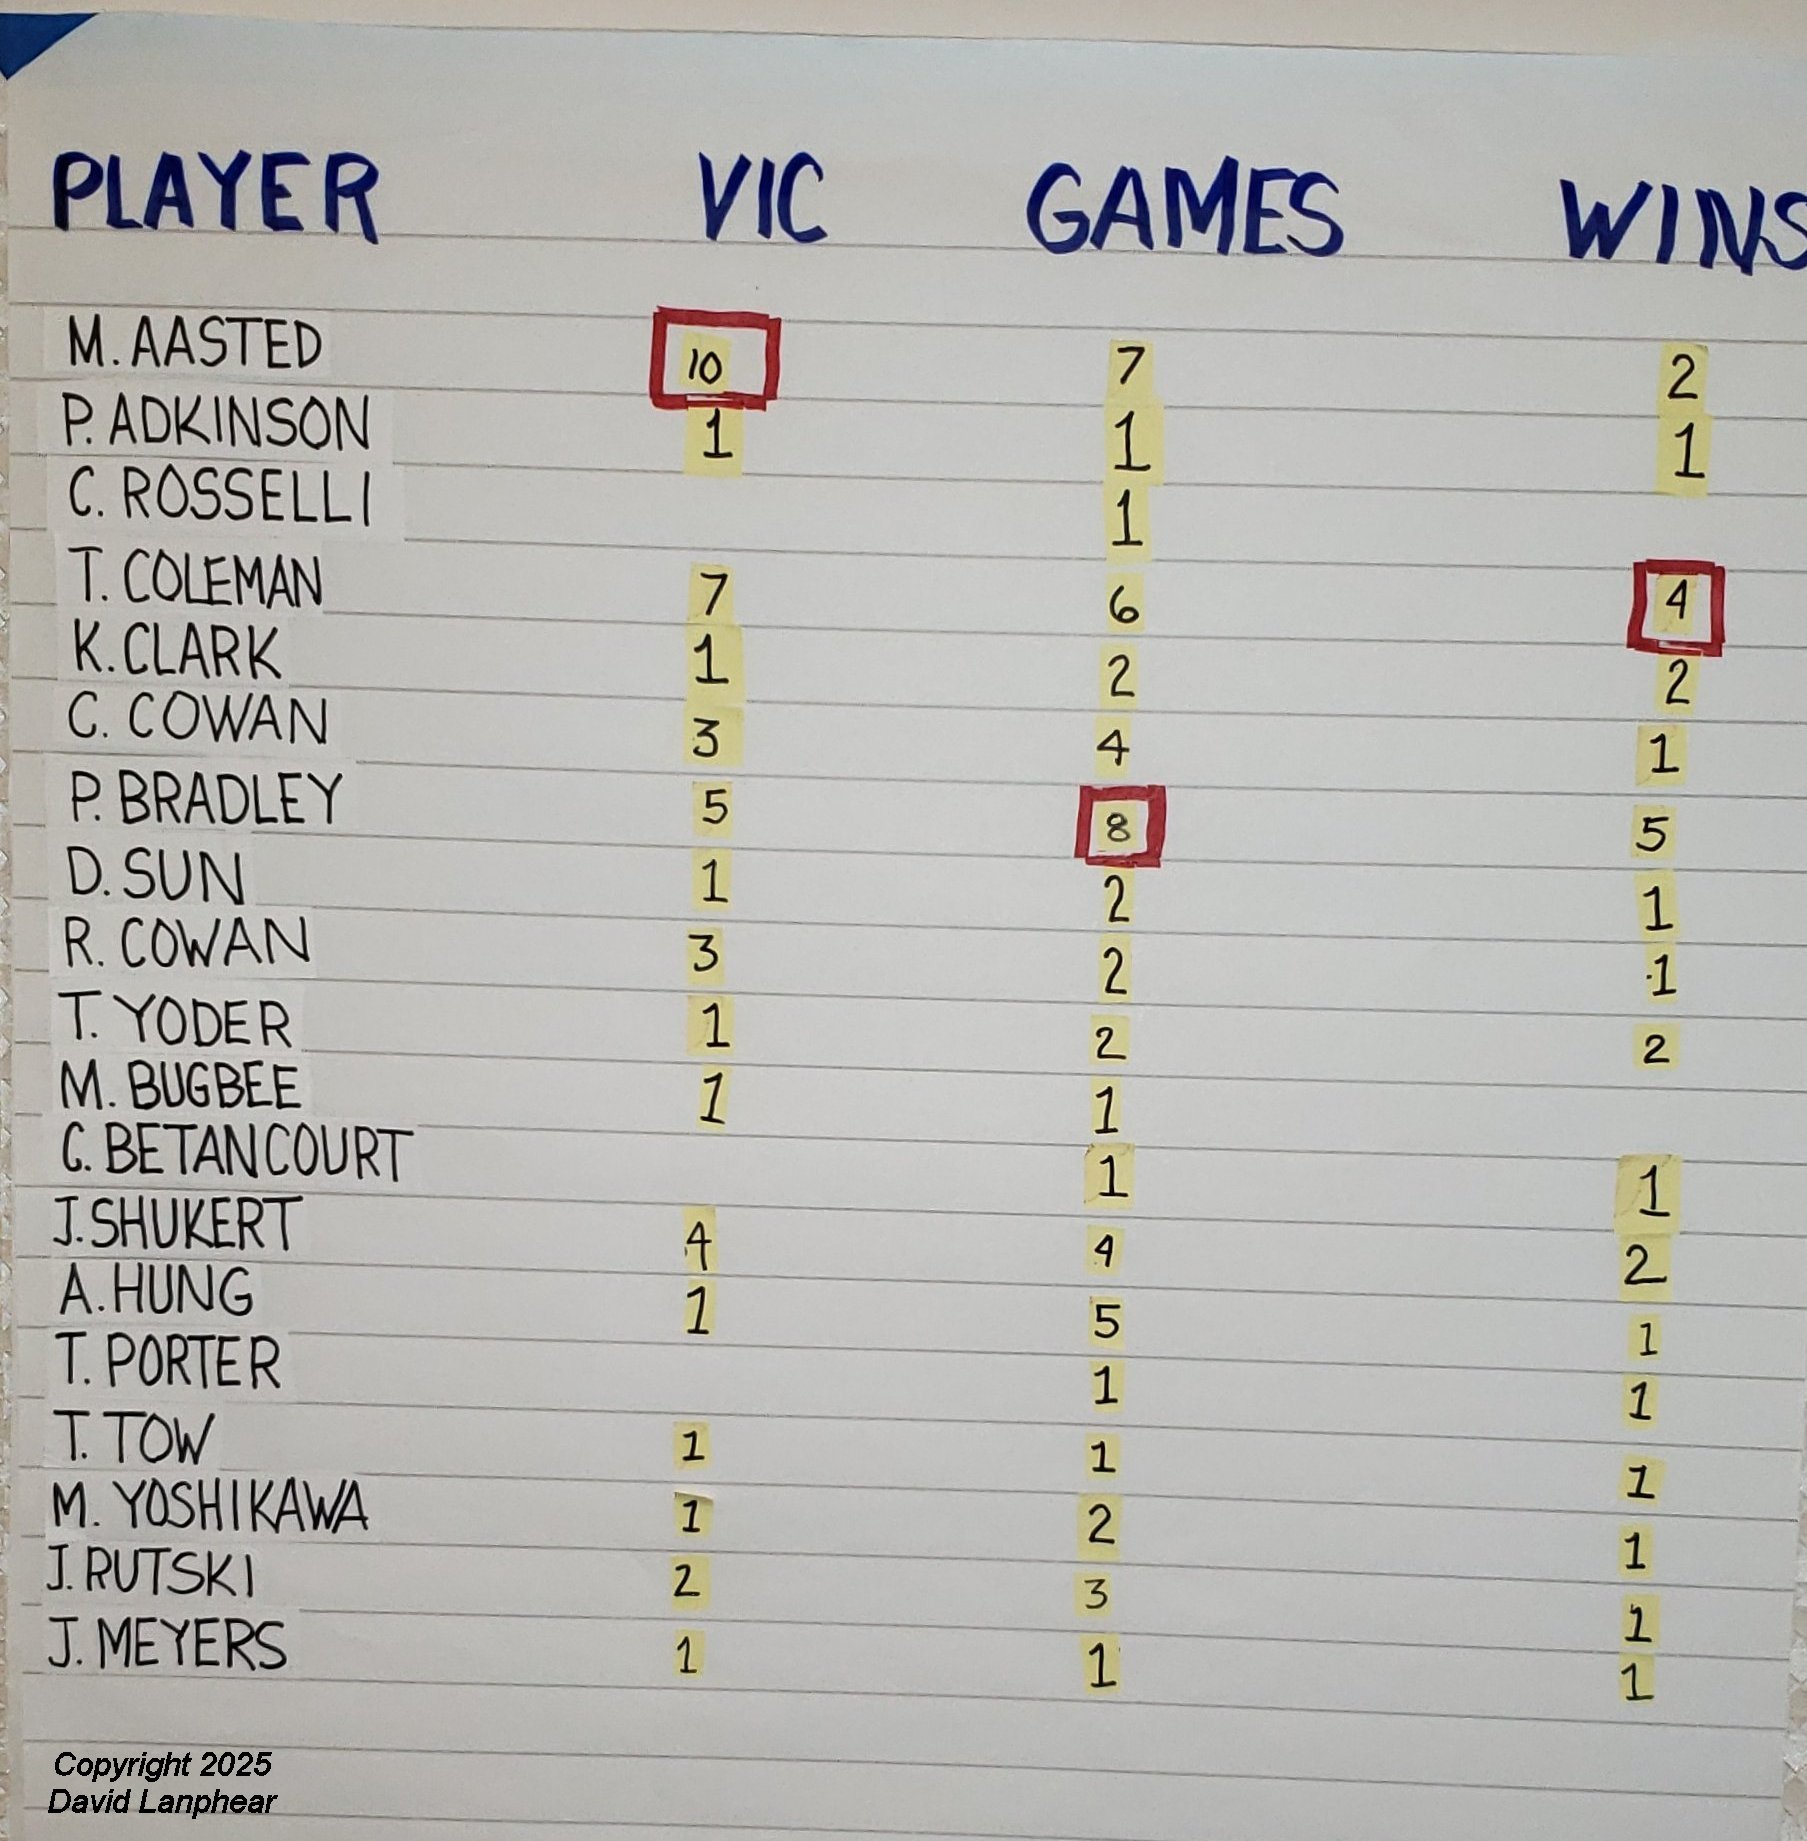 PLAYER VIC GAMES WINS
M. AASTED 10 7 2
P. ADKINSON 1 1 1
C. ROSSELLI 1
T. COLEMAN 7 6 4
K. CLARK 1 2 2
C. COWAN 3 4 1
P. BRADLEY 5 8 5
D. SUN 1 2 1
R. COWAN 3 2 1
T. YODER 1 2 2
M. BUGBEE 1 1
C. BETANCOURT 1 1
J. SHUKERT 4 4 2
A. HUNG 1 5 1
T. PORTER 1 1
T. TOW 1 1 1
M. YOSHIKAWA 1 2 1
J. RUTSKI 2 3 1
J. MEYERS 1 1 1
Copyright 2025
David Lanphear